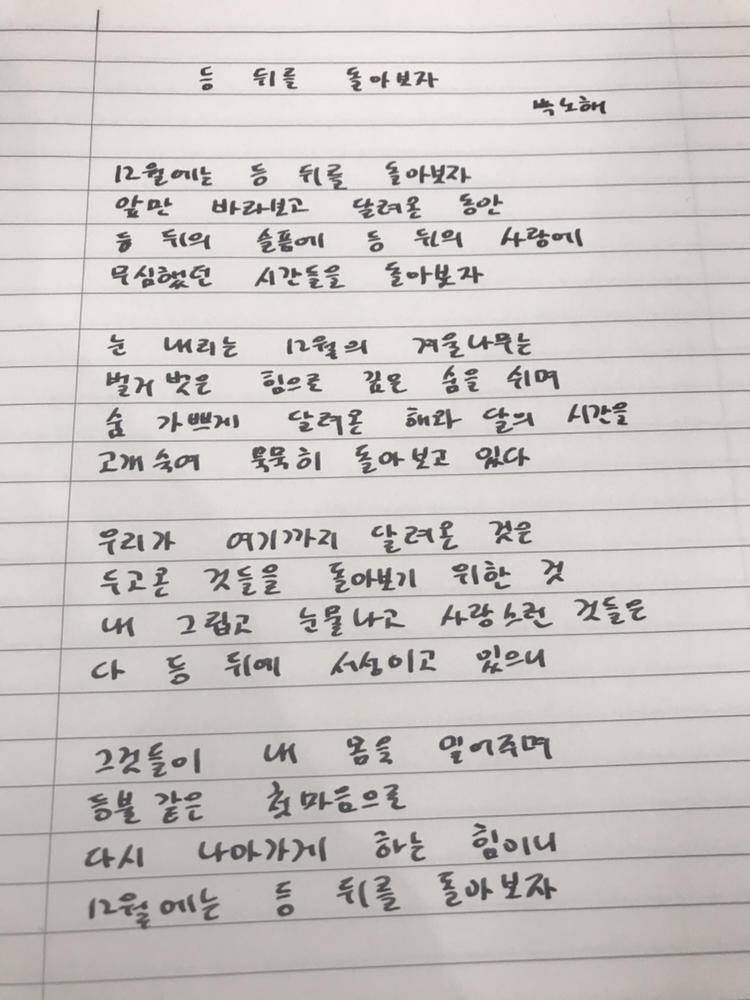 등 뒤를 돌아보자
박노해
12월에는 등 뒤를 돌아보자
앞만 바라보고 달려온 동안
등 뒤의 슬픔에 등 뒤의 사랑에
무심했던 시간들을 돌아보자
눈 내리는 12월의 겨울나무는
벌거벗은 힘으로 깊은 숨을 쉬며
숨 가쁘게 달려온 해와 달의 시간을
고개숙여 묵묵히 돌아보고 있다
우리가 여기까지 달려온 것은
두고온 것들을 돌아보기 위한 것
내 그립고 눈물나고 사랑스런 것들은
다 등 뒤에 서성이고 있으니
그것들이 내 몸을 밀어주며
등불 같은 첫마음으로
다시 나아가게 하는 힘이니
12월에는 등 뒤를 돌아보자